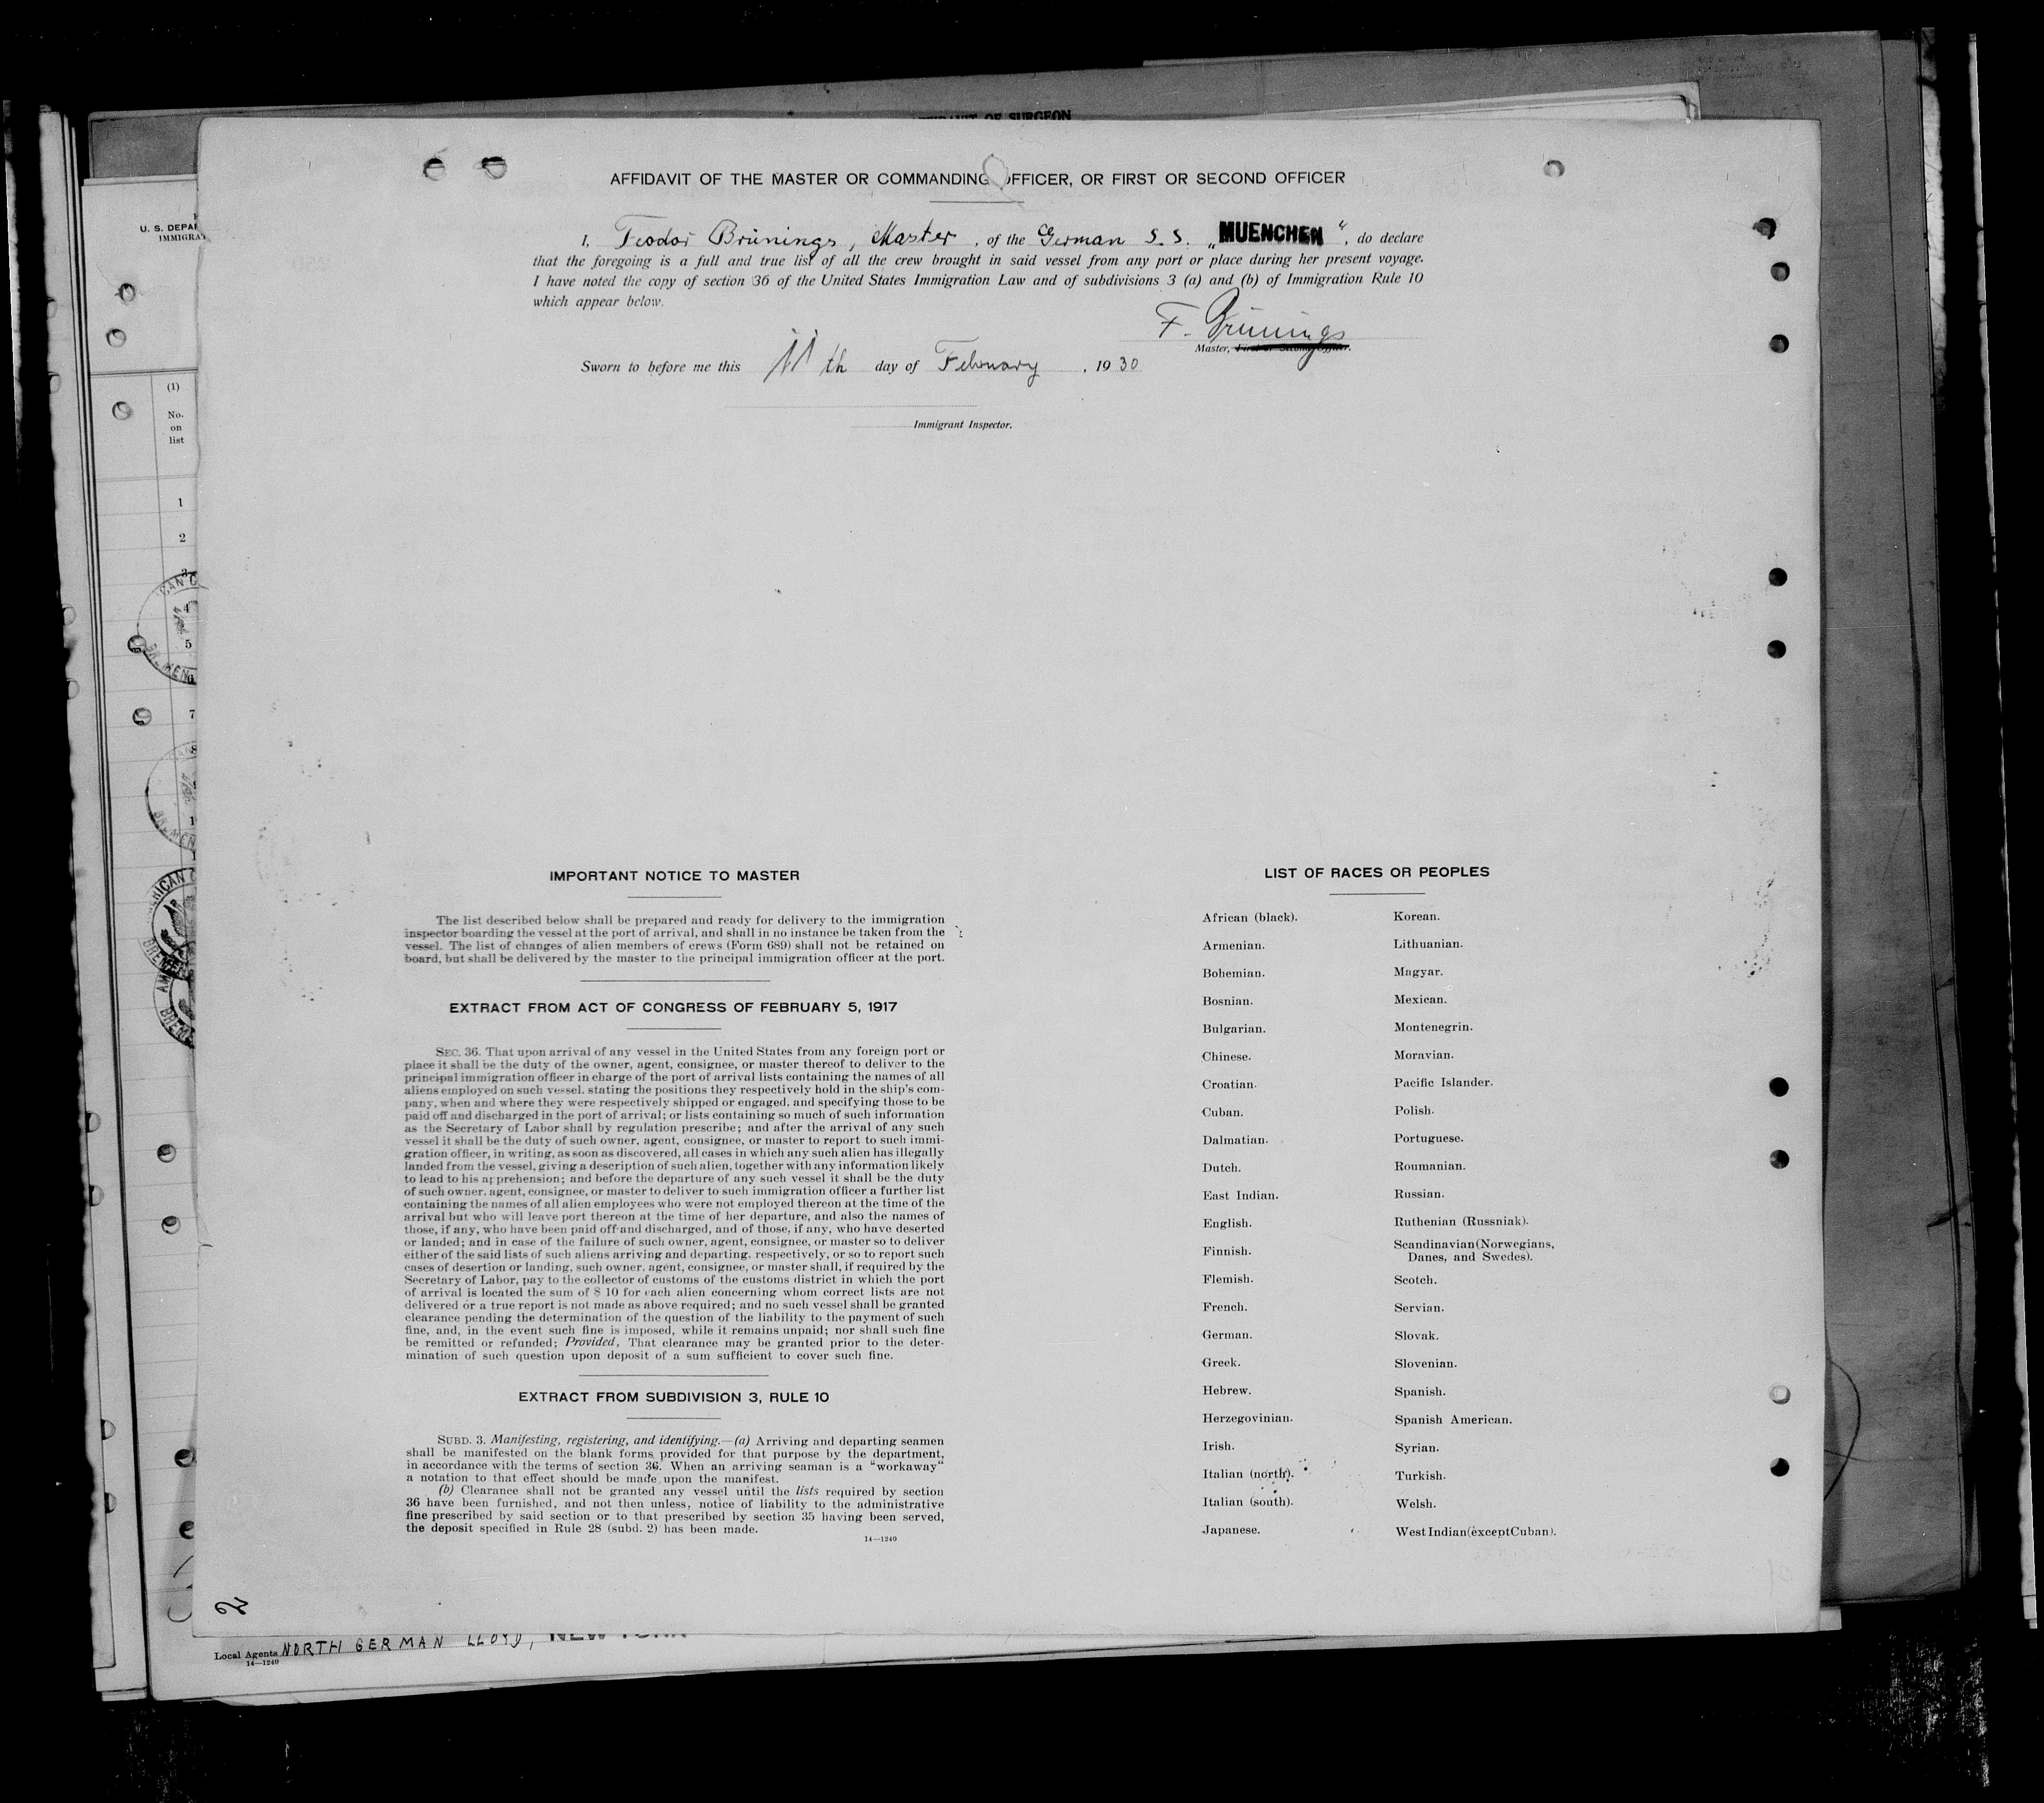 AFFIDAVIT OF SURGEON
AFFIDAVIT OF THE MASTER OR COMMANDING OFFICER, OR FIRST OR SECOND OFFICER
I, Feodor Brünings, Master, of the German S. S. „MUENCHEN“, do declare
that the foregoing is a full and true list of all the crew brought in said vessel from any port or place during her present voyage.
I have noted the copy of section 36 of the United States Immigration Law and of subdivisions 3 (a) and (b) of Immigration Rule 10
which appear below.
F. Brünings
Master, First or Second Officer.
Sworn to before me this 11th day of February, 1930
Immigrant Inspector.
IMPORTANT NOTICE TO MASTER
The list described below shall be prepared and ready for delivery to the immigration
inspector boarding the vessel at the port of arrival, and shall in no instance be taken from the
vessel. The list of changes of alien members of crews (Form 689) shall not be retained on
board, but shall be delivered by the master to the principal immigration officer at the port.
EXTRACT FROM ACT OF CONGRESS OF FEBRUARY 5, 1917
SEC. 36. That upon arrival of any vessel in the United States from any foreign port or
place it shall be the duty of the owner, agent, consignee, or master thereof to deliver to the
principal immigration officer in charge of the port of arrival lists containing the names of all
aliens employed on such vessel, stating the positions they respectively hold in the ship's com-
pany, when and where they were respectively shipped or engaged, and specifying those to be
paid off and discharged in the port of arrival; or lists containing so much of such information
as the Secretary of Labor shall by regulation prescribe; and after the arrival of any such
vessel it shall be the duty of such owner, agent, consignee, or master to report to such immi-
gration officer, in writing, as soon as discovered, all cases in which any such alien has illegally
landed from the vessel, giving a description of such alien, together with any information likely
to lead to his apprehension; and before the departure of any such vessel it shall be the duty
of such owner, agent, consignee, or master to deliver to such immigration officer a further list
containing the names of all alien employees who were not employed thereon at the time of the
arrival but who will leave port thereon at the time of her departure, and also the names of
those, if any, who have been paid off and discharged, and of those, if any, who have deserted
or landed; and in case of the failure of such owner, agent, consignee, or master so to deliver
either of the said lists of such aliens arriving and departing, respectively, or so to report such
cases of desertion or landing, such owner, agent, consignee, or master shall, if required by the
Secretary of Labor, pay to the collector of customs of the customs district in which the port
of arrival is located the sum of $ 10 for each alien concerning whom correct lists are not
delivered or a true report is not made as above required; and no such vessel shall be granted
clearance pending the determination of the question of the liability to the payment of such
fine, and, in the event such fine is imposed, while it remains unpaid; nor shall such fine
be remitted or refunded; Provided, That clearance may be granted prior to the deter-
mination of such question upon deposit of a sum sufficient to cover such fine.
EXTRACT FROM SUBDIVISION 3, RULE 10
SUBD. 3. Manifesting, registering, and identifying.—(a) Arriving and departing seamen
shall be manifested on the blank forms provided for that purpose by the department,
in accordance with the terms of section 36. When an arriving seaman is a "workaway"
a notation to that effect should be made upon the manifest.
(b) Clearance shall not be granted any vessel until the lists required by section
36 have been furnished, and not then unless, notice of liability to the administrative
fine prescribed by said section or to that prescribed by section 35 having been served,
the deposit specified in Rule 28 (subd. 2) has been made.
14—1240
LIST OF RACES OR PEOPLES
African (black).
Armenian.
Bohemian.
Bosnian.
Bulgarian.
Chinese.
Croatian.
Cuban.
Dalmatian.
Dutch.
East Indian.
English.
Finnish.
Flemish.
French.
German.
Greek.
Hebrew.
Herzegovinian.
Irish.
Italian (north).
Italian (south).
Japanese.
Korean.
Lithuanian.
Magyar.
Mexican.
Montenegrin.
Moravian.
Pacific Islander.
Polish.
Portuguese.
Roumanian.
Russian.
Ruthenian (Russniak).
Scandinavian (Norwegians,
Danes, and Swedes).
Scotch.
Servian.
Slovak.
Slovenian.
Spanish.
Spanish American.
Syrian.
Turkish.
Welsh.
West Indian (except Cuban).
U. S. DEPAR
IMMIGRA
(1)
No.
on
list
1
2
3
4
5
7
8
Local Agents NORTH GERMAN LLOYD, NEW YORK
14—1240